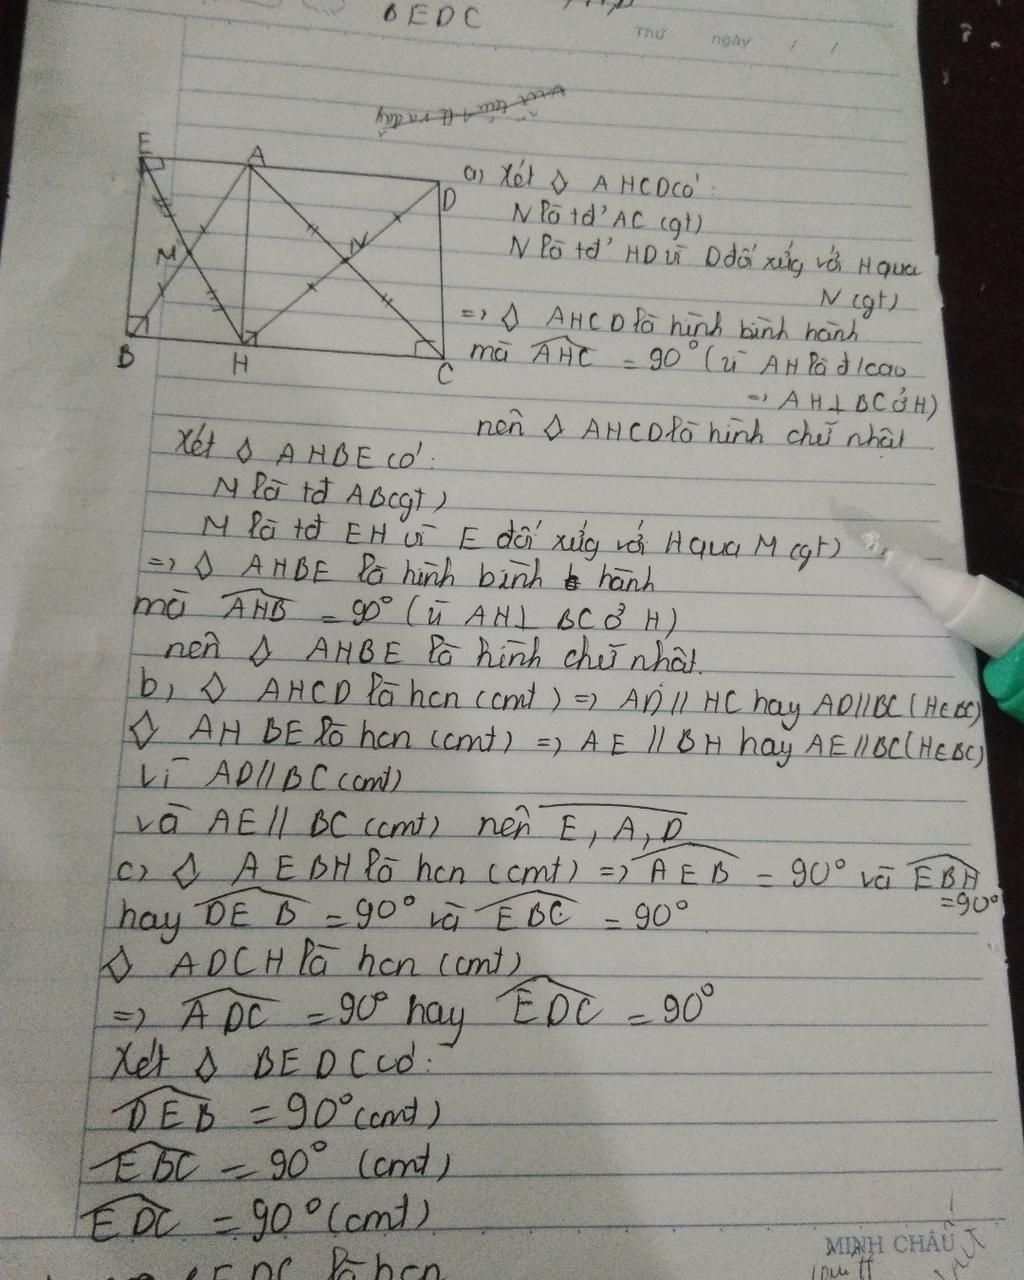 BEDC
Thứ ngày / /
E A D
M N
B H C
a, Xét ◇ AHCD có:
N là tđ' AC (gt)
N là tđ' HD vì D đối xứg với H qua
N (gt)
=> ◇ AHCD là hình bình hành
mà AHC = 90° (vì AH là đ/cao
=> AH⊥BC ở H)
nên ◇ AHCD là hình chữ nhật
Xét ◇ AHBE có:
M là tđ AB(gt)
M là tđ EH vì E đối xứg với H qua M (gt)
=> ◇ AHBE là hình bình hành
mà AHB = 90° (vì AH⊥ BC ở H)
nên ◇ AHBE là hình chữ nhật.
b, ◇ AHCD là hcn (cmt) => AD // HC hay AD//BC (H∈BC)
◇ AHBE là hcn (cmt) => AE // BH hay AE//BC(H∈BC)
Vì AD//BC (cmt)
và AE// BC (cmt) nên E, A, D
c, ◇ AEBH là hcn (cmt) => AEB = 90° và EBH
=90°
hay DEB = 90° và EBC = 90°
◇ ADCH là hcn (cmt)
=> ADC = 90° hay EDC = 90°
Xét ◇ BEDC có:
DEB = 90° (cmt)
EBC = 90° (cmt)
EDC = 90° (cmt)
MINH CHÂU
BEDC là hcn